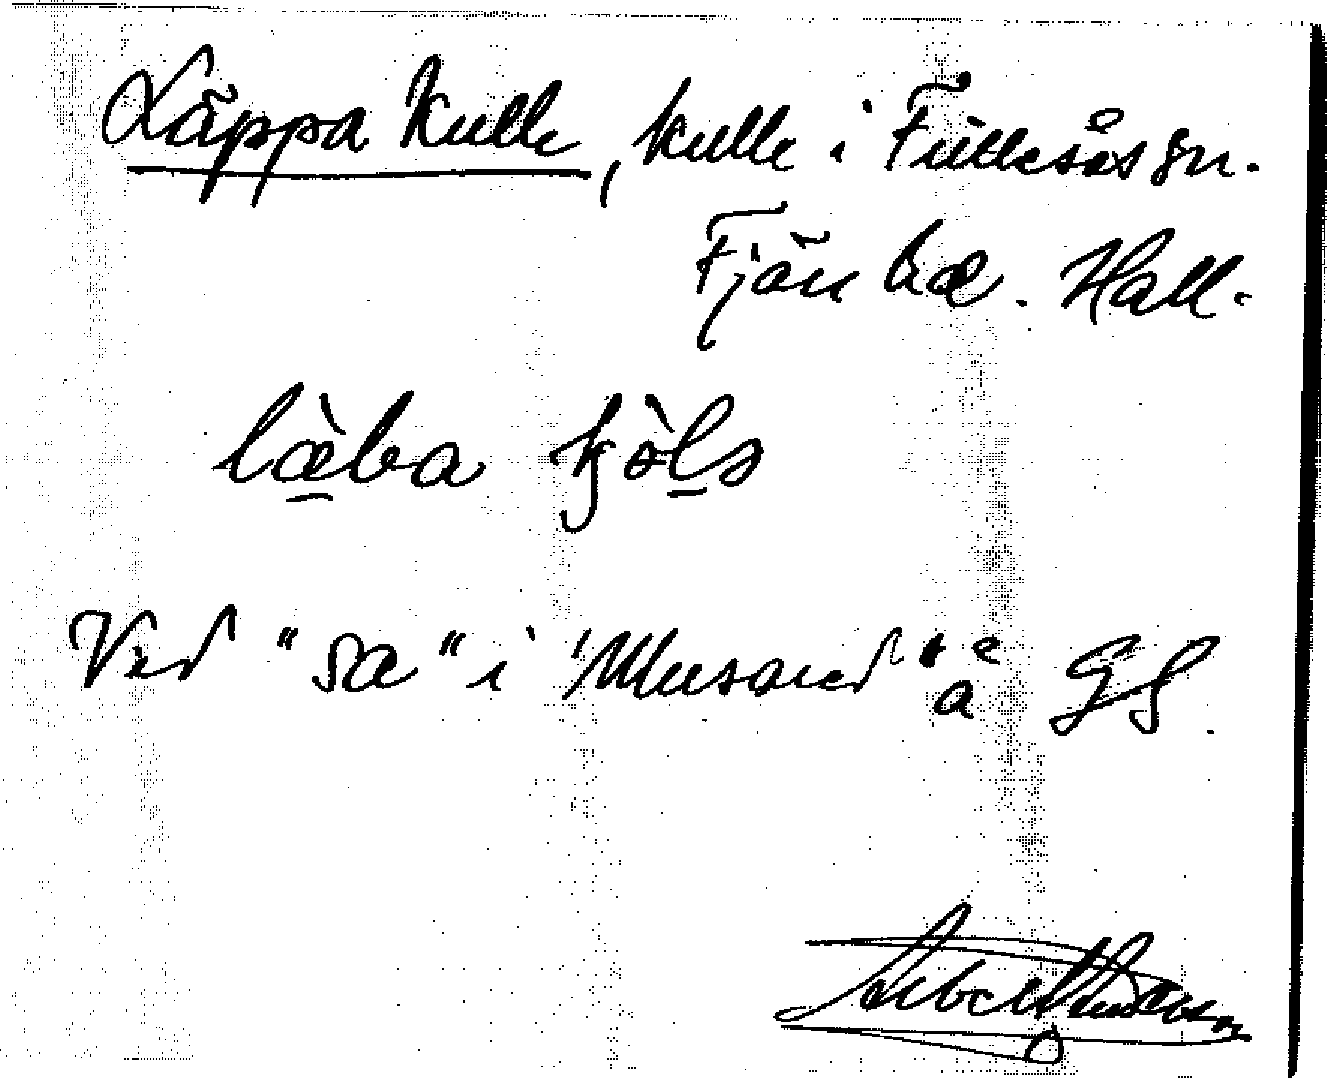 Läppa Kulle, kulle i Fullesås gn.
Fjäre hd. Hall.
læ̀ba kjòls
Ved "sæ" i "Musared" å GS.